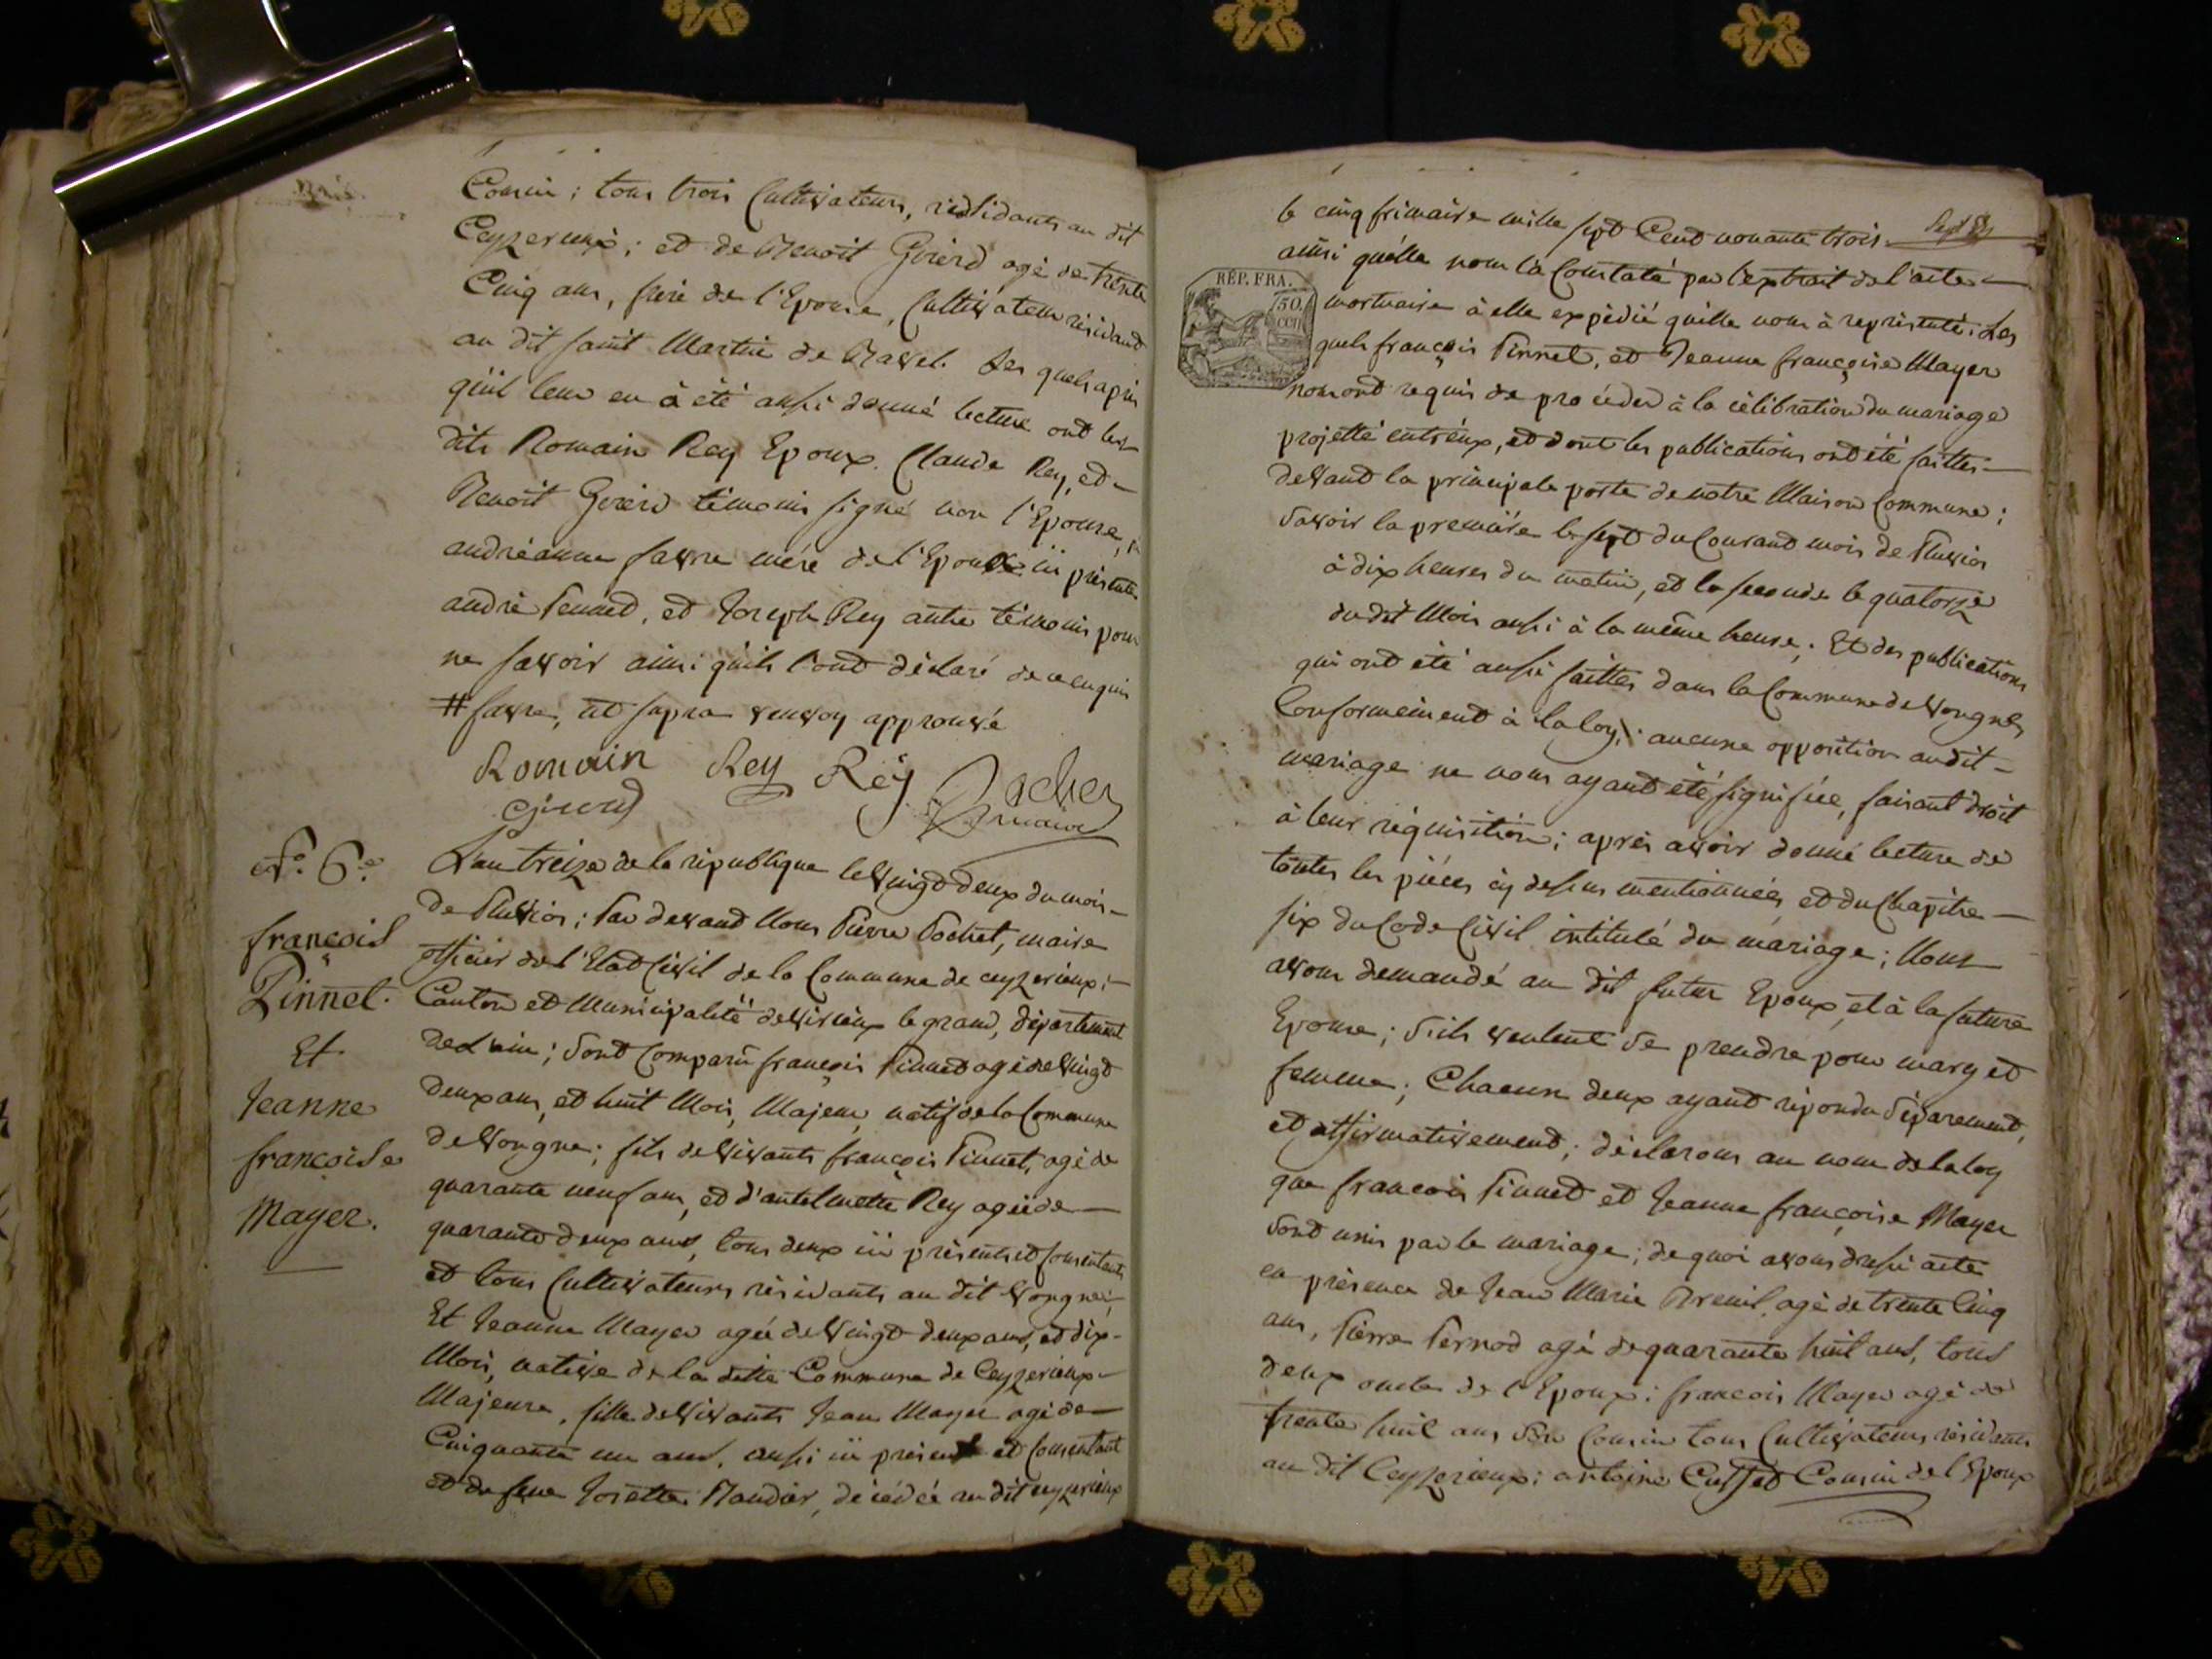 Cousin; tous trois Cultivateurs, résidants au dit
Ceyzerieux; et de Benoit Girerd agé de trente
Cinq ans, frere de l'Epouse, Cultivateur résidant
au dit saint Martin de Bavel. Les quels après
qu'il leur en à été aussi donné lecture ont les
dits Romain Rey Epoux. Claude Rey, et
Benoit Girerd témoins signé non l'Epouse,
andréanne favre mére de l'Epoux ici présente
andré Pennet, et Joseph Rey autre témoins pour
ne savoir ainsi qu'ils l'ont déclaré de ce enquis
# favre, ut supra renvoy approuvé
Romain Rey Rey Pochet
Girerd maire
N.° 6.e
françois
Pinnet.
Et
Jeanne
françoise
Mayer.
L'an treize de la république le Vingt deux du mois
de Pluvios; Par devant Nous Pierre Pochet, maire
officier de l'Etat Civil de la Commune de ceyzerieux;
Canton et Municipalité de Virieux le grand, département
de L'ain; Sont Comparû françois Pinnet agé de Vingt
deux ans, et huit Mois, Majeur, natif de la Commune
de Vongne; fils de Vivants françois Pinnet, agé de
quarante neuf ans, et d'antelmette Rey agée de
quarante deux ans, tous deux ici présents et Consentants
et tous Cultivateurs résidants au dit Vongne;
Et Jeanne Mayer agée de Vingt deux ans, et dix
Mois, native de la ditte Commune de Ceyzerieux
Majeure, fille de Vivants Jean Mayer agé de
Cinquante un ans, aussi ici présent et Consentant
et de feue Josette Naudier, décédée au dit ceyzerieux
le cinq frimaire mille sept Cent nonante trois
ainsi qu'elle nous l'a Constaté par l'extrait de l'acte
RÉP. FRA.
mortuaire à elle expédié qu'elle nous à représenté: Les
quels françois Pinnet, et Jeanne françoise Mayer
nous ont requis de procéder à la célébration du mariage
projetté entréux, et dont les publications ont été faittes
devant la principale porte de notre Maison Commune;
Savoir la premiére le sept du Courant mois de Pluvios
à dix heures du matin, et la seconde le quatorze
du dit Mois aussi à la même heure; Et des publications
qui ont été aussi faittes dans la Commune de Vongnes
Conformément à la loy; aucune opposition au dit
mariage ne nous ayant été signifiée, faisant droit
à leur réquisition; après avoir donné lecture de
toutes les piéces cy dessus mentionnées, et du Chapitre
six du Code Civil intitulé du mariage; Nous
avons demandé au dit futur Epoux, et à la future
Epouse; S'ils veulent se prendre pour mary et
femme; Chacun deux ayant répondu Séparement,
et affirmativement; déclarons au nom de la loy
que françois Pinnet et Jeanne françoise Mayer
Sont unis par le mariage; de quoi avons dressé acte
en présence de Jean Marie Breuil, agé de trente Cinq
ans, Pierre Pernod agé de quarante huit ans, tous
deux oncles de l'Epoux; françois Mayer agé de
trente huit ans Son Cousin tous Cultivateurs résidants
au dit Ceyzerieux; antoine Cusset Cousin de l'Epoux